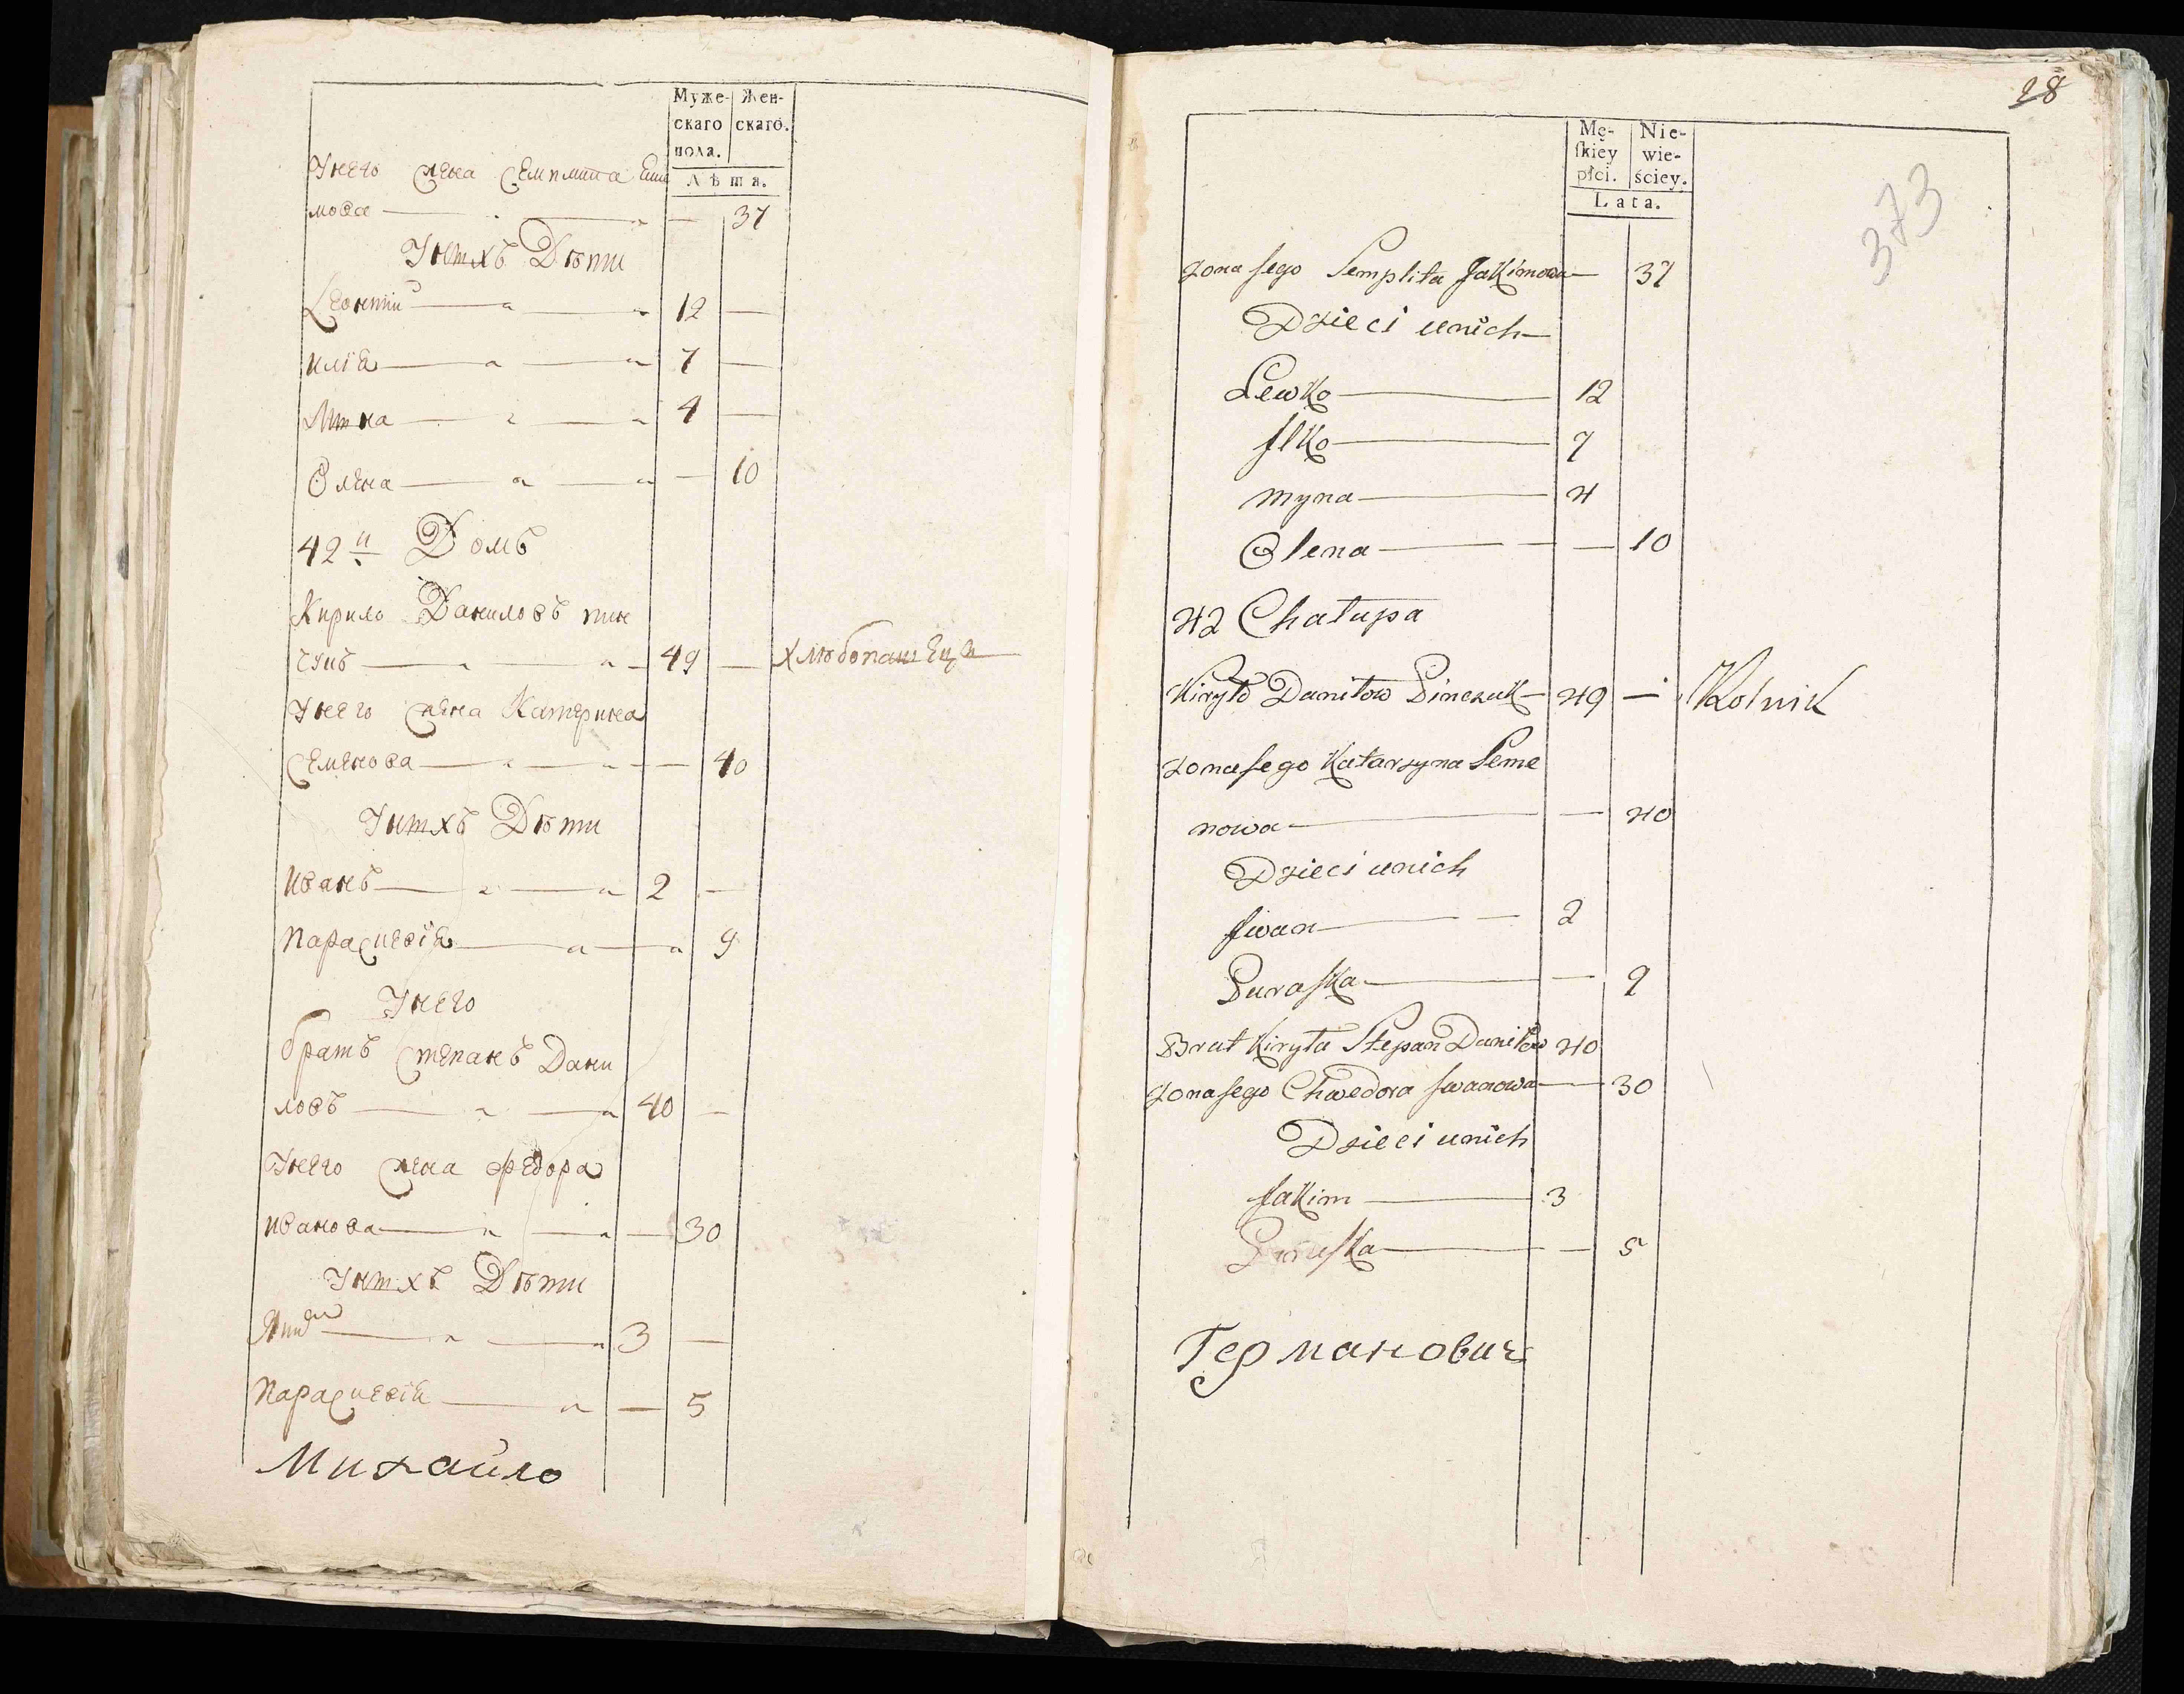 Муже- Жен-
скаго скаго.
пола.
Лѣта.
Унего жена Семплита Еки
мова — — 37
Унихъ Дѣти
Леонтий — 12 —
Илія — 7 —
Мина — 4 —
Олена — — 10
42й Домъ
Кирило Даниловъ пин
чукъ — 49 — хлѣбопашецъ
Унего жена Катерина
Семенова — — 40
Унихъ Дѣти
Иванъ — 2 —
Параскевія — — 9
Унего
братъ Степанъ Дани
ловъ — 40 —
Унего жена Федора
Иванова — — 30
Унихъ Дѣти
3 —
Параскевія — — 5
Михайло
28
373
Mę- Nie-
skiey wie-
płci. ściey.
Lata.
zona jego Semplita Jakimowa — 37
Dzieci unich
Lewko — 12
Ilko — 7
Myna — 4
Olena — — 10
42 Chałupa
Kiryło Daniłow Pinczuk — 49 — Rolnik
zona jego Katarzyna Seme
nowa — — 40
Dzieci unich
Iwan — 2
Paraska — — 9
Brat Kiryła Stepan Daniłow 40
zona jego Chwedora Iwanowa — 30
Dzieci unich
Jakim — 3
Paraska — — 5
Германович